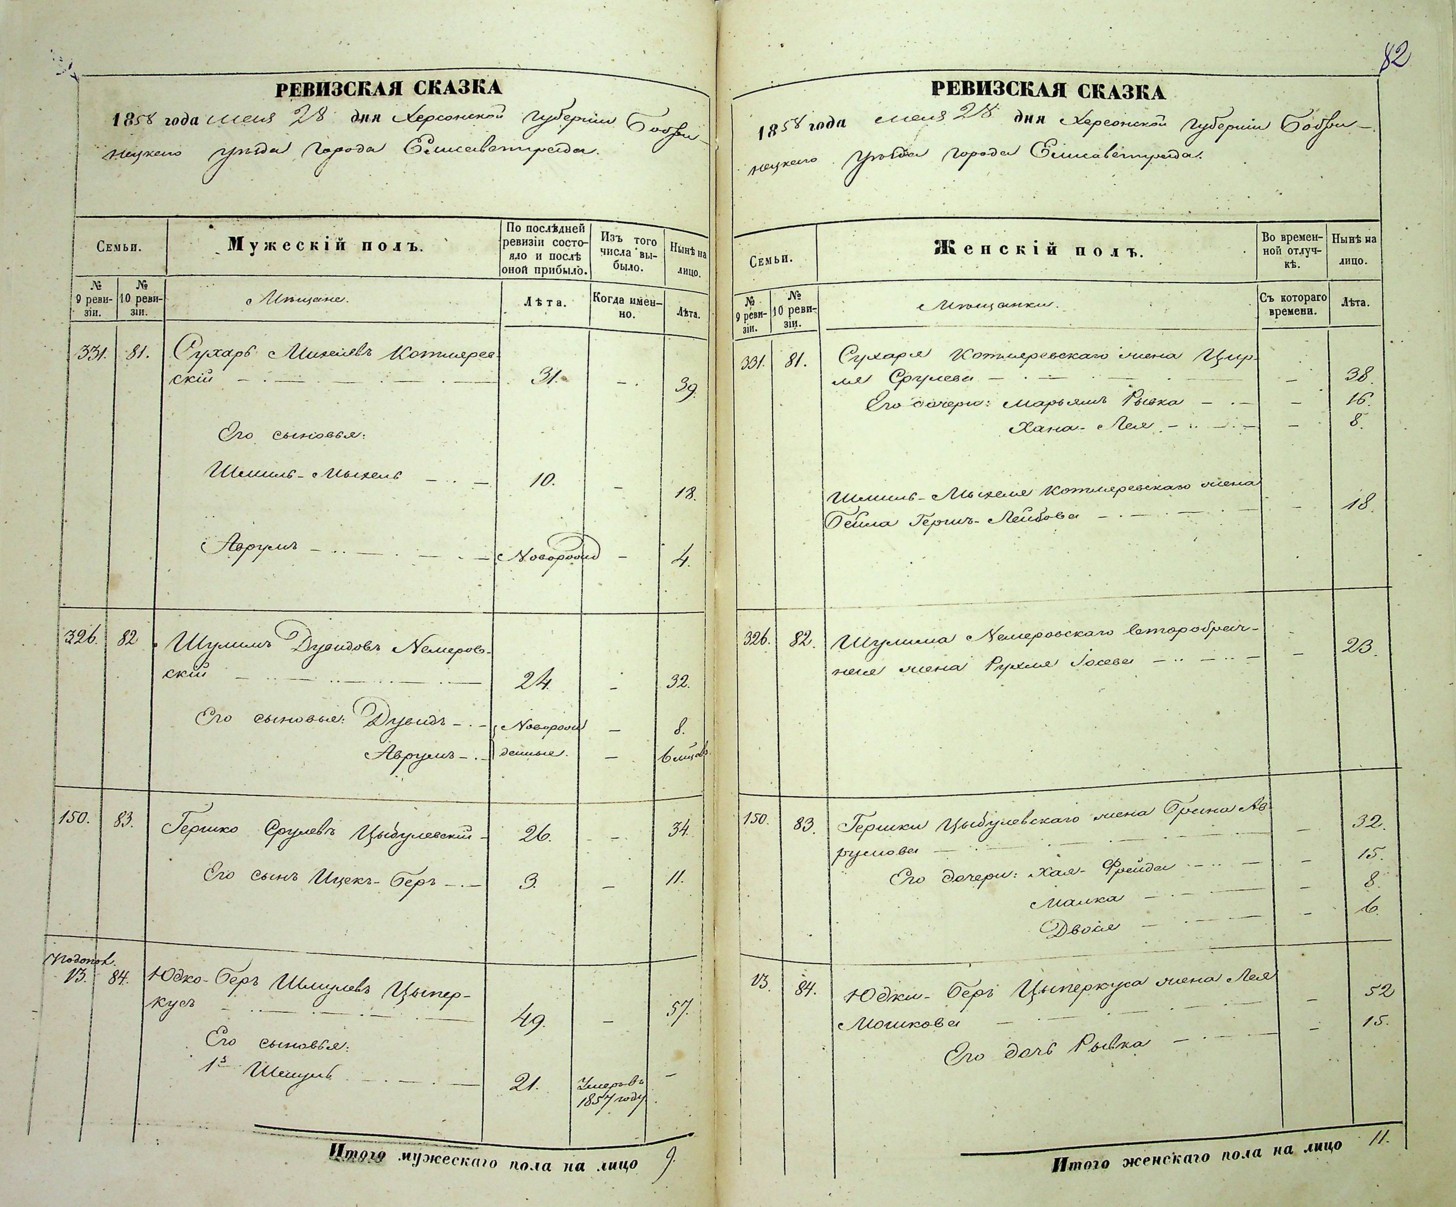 РЕВИЗСКАЯ СКАЗКА
1858 года мая 28 дня Херсонской Губерніи Бобри-
нецкаго уѣзда города Елисаветграда.
Семьи.
Мужескій полъ.
По послѣдней ревизіи состо-яло и послѣ оной прибыло.
Изъ того числа вы-было.
Нынѣ на лицо.
№ 9 реви-зіи.
№ 10 реви-зіи.
Мѣщане.
Лѣта.
Когда имен-но.
Лѣта.
331. 81. Сухарь Михелевъ Котлярев-
скій 31. 39.
Его сыновья:
Шмиль-Михель 10. 18.
Аврумъ Новорожд 4.
326. 82 Шулимъ Дувидовъ Немеров-
скій 24. 32.
Его сыновья: Дувидъ Новорож 8.
Аврумъ денные. 6 мѣсяц.
150. 83. Гершко Срулевъ Цыбулевскій 26. 34.
Его сынъ Ицекъ-Беръ 3. 11.
13. 84. Юдко-Беръ Шмулевъ Цыпер-
кусъ 49. 57.
Его сыновья:
1й Шмуль 21. Умеръ въ
1857 году
Итого мужескаго пола на лицо 9.
82
РЕВИЗСКАЯ СКАЗКА
1858 года мая 28 дня Херсонской Губерніи Бобри-
нецкаго уѣзда города Елисаветграда.
Семьи.
Женскій полъ.
Во времен-ной отлуч-кѣ.
Нынѣ на лицо.
№ 9 реви-зіи.
№ 10 реви-зіи.
Мѣщанки.
Съ котораго времени.
Лѣта.
331. 81. Сухаря Котляревскаго жена Цир-
ля Срулева 38.
Его дочери: Марьямъ Рывка 16.
Хана-Лея 8.
Шмиль-Михеля Котляревскаго жена
Бейла Гершъ-Лейбова 18.
326. 82. Шулима Немеровскаго второбрач-
ная жена Рухля Іосева 23.
150. 83. Гершки Цыбулевскаго жена Брана Ав-
румова 32.
Его дочери: Хая-Фрейда 15.
Малка 8.
Двойя 6.
13. 84. Юдки-Беръ Цыперкуса жена Лея
Мошкова 52
Его дочь Рывка 15.
Итого женскаго пола на лицо 11.